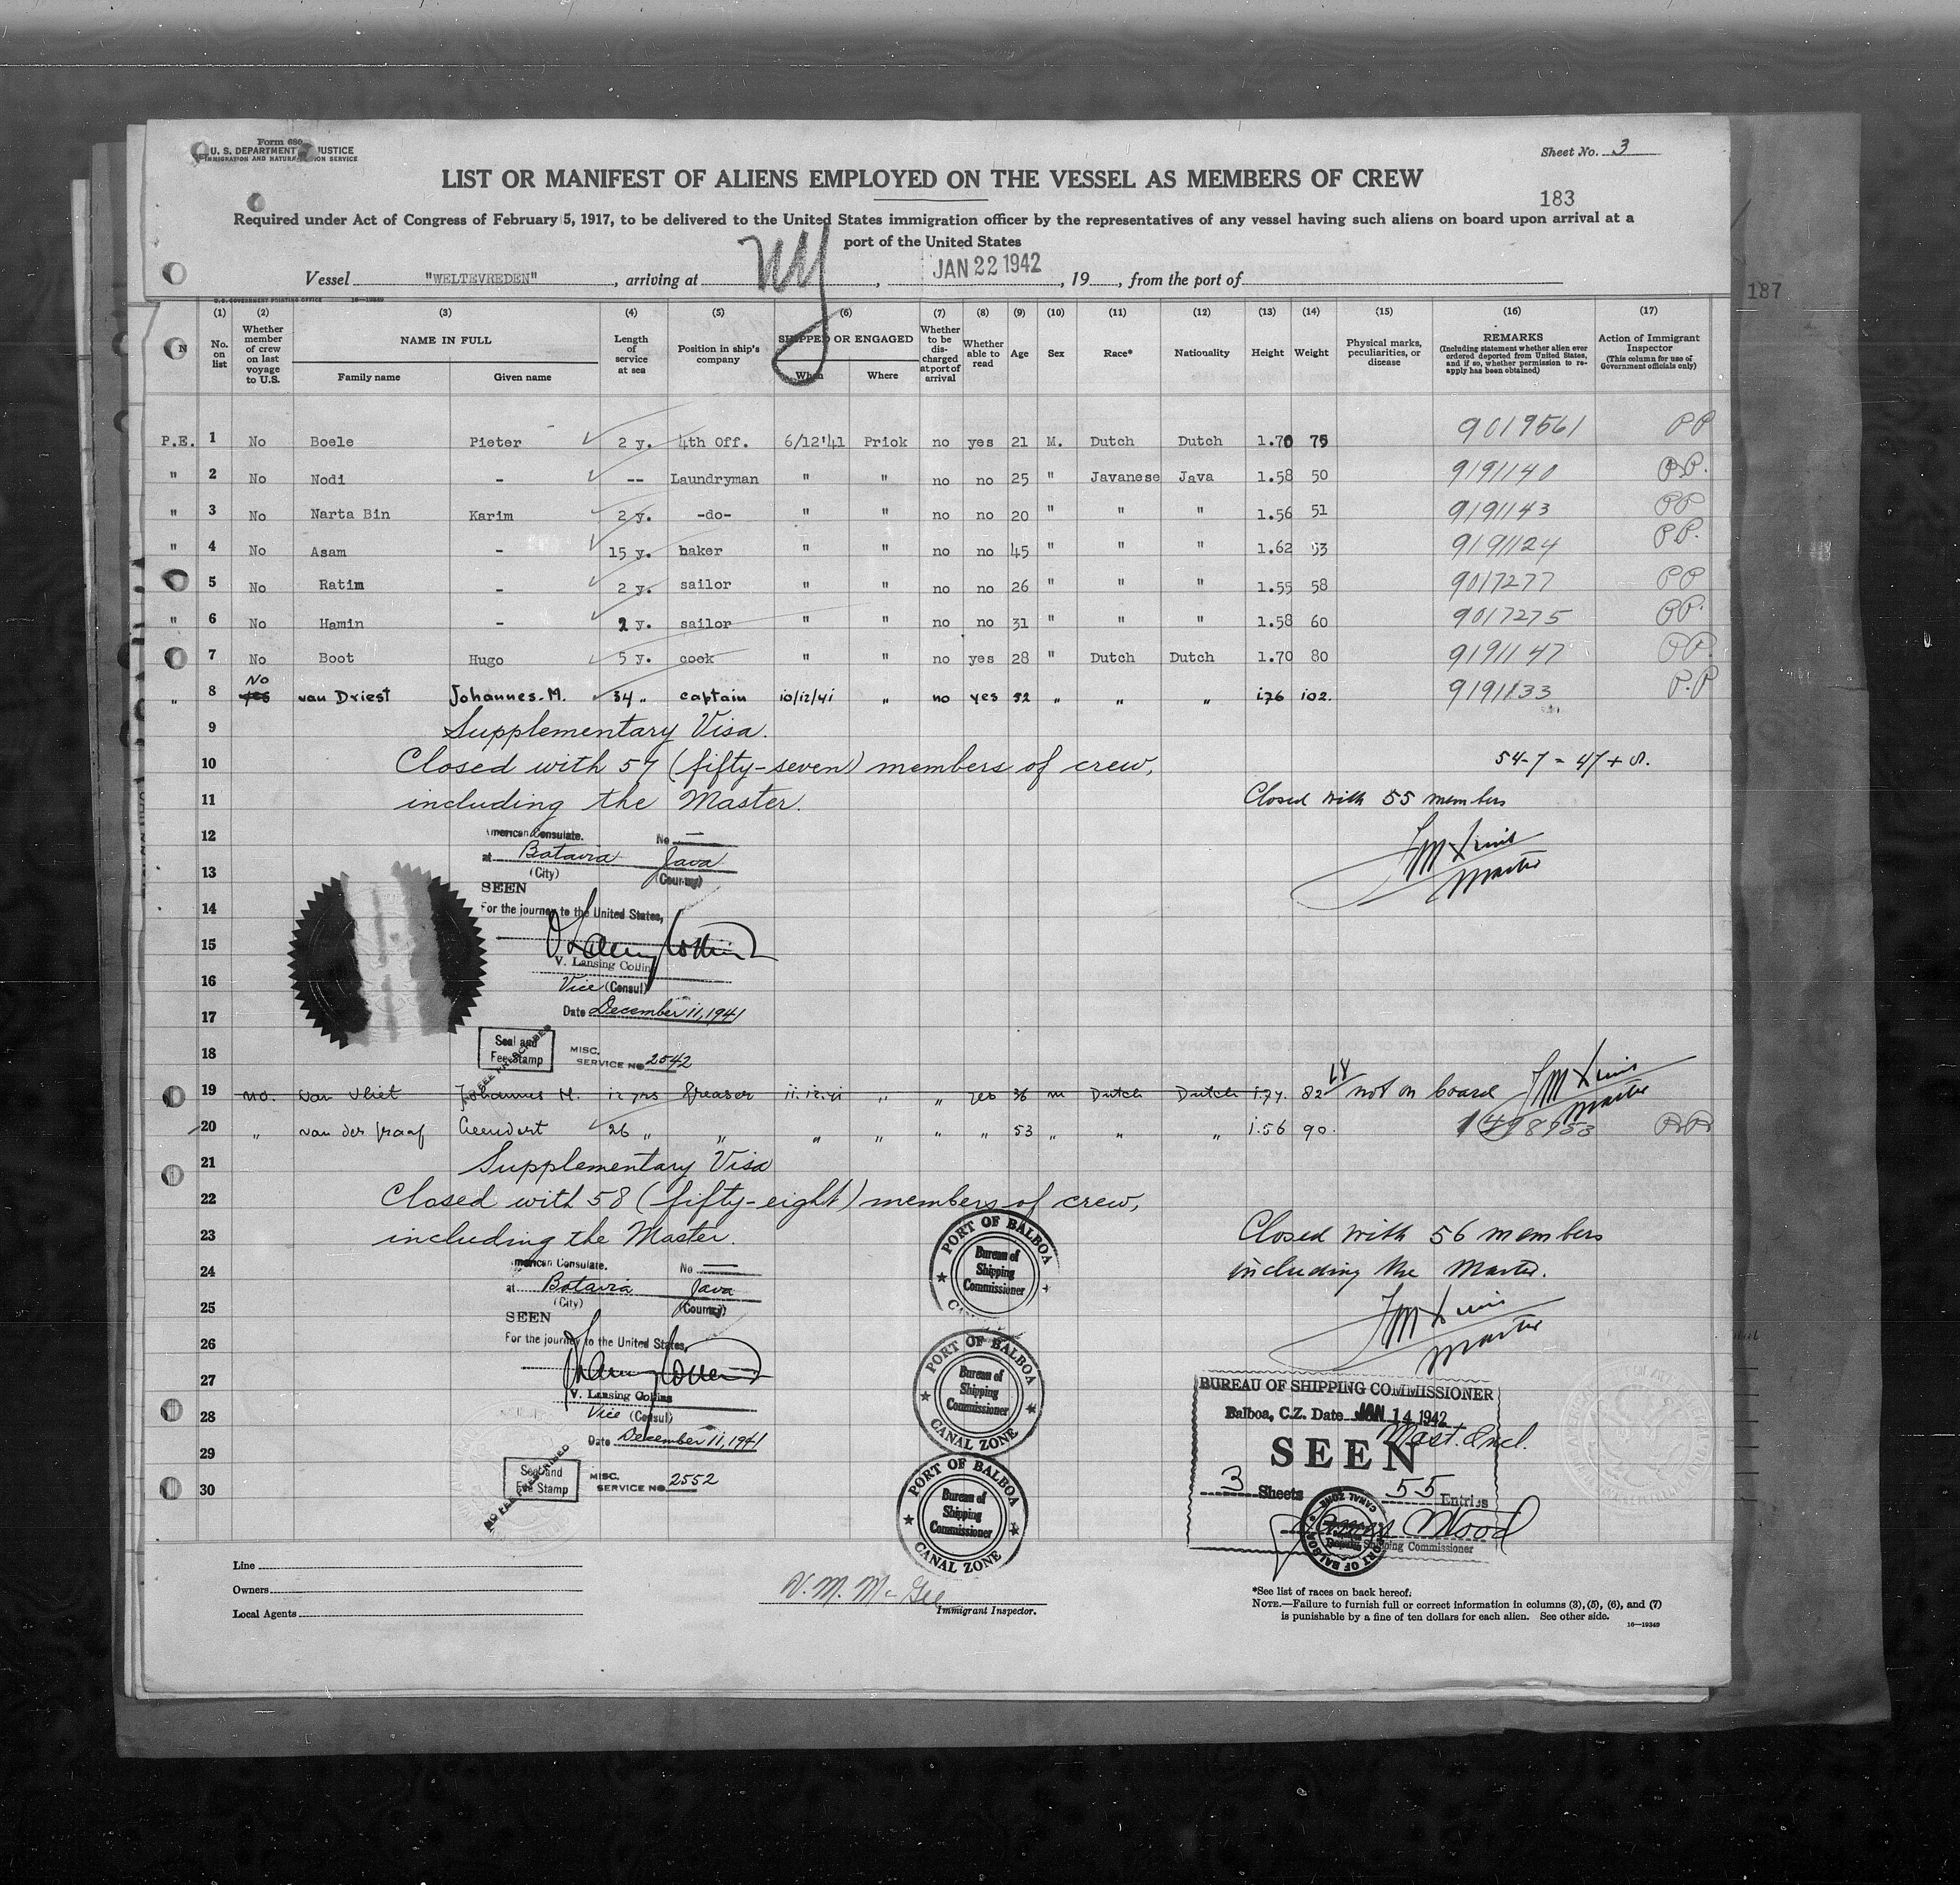 Form 680
U. S. DEPARTMENT JUSTICE
IMMIGRATION AND NATURALIZATION SERVICE
Sheet No. 3
LIST OR MANIFEST OF ALIENS EMPLOYED ON THE VESSEL AS MEMBERS OF CREW
183
Required under Act of Congress of February 5, 1917, to be delivered to the United States immigration officer by the representatives of any vessel having such aliens on board upon arrival at a
port of the United States
Vessel "WELTEVREDEN", arriving at NY, JAN 22 1942, 19, from the port of
187
U.S. GOVERNMENT PRINTING OFFICE 16—19349
(1) (2) (3) (4) (5) (6) (7) (8) (9) (10) (11) (12) (13) (14) (15) (16) (17)
No. on list
Whether member of crew on last voyage to U.S.
NAME IN FULL
Family name Given name
Length of service at sea
Position in ship's company
SHIPPED OR ENGAGED
When Where
Whether to be discharged at port of arrival
Whether able to read
Age
Sex
Race*
Nationality
Height
Weight
Physical marks, peculiarities, or disease
REMARKS
(Including statement whether alien ever ordered deported from United States, and if so, whether permission to reapply has been obtained)
Action of Immigrant Inspector
(This column for use of Government officials only)
P.E. 1 No Boele Pieter 2 y. 4th Off. 6/12'41 Priok no yes 21 M. Dutch Dutch 1.70 75 9019561 PP
" 2 No Nodi - -- Laundryman " " no no 25 " Javanese Java 1.58 50 9191140 P.P.
" 3 No Narta Bin Karim 2 y. -do- " " no no 20 " " " 1.56 51 9191143 PP
" 4 No Asam - 15 y. baker " " no no 45 " " " 1.62 53 9191124 P.P.
5 No Ratim - 2 y. sailor " " no no 26 " " " 1.55 58 9017277 PP
" 6 No Hamin - 2 y. sailor " " no no 31 " " " 1.58 60 9017275 PP.
7 No Boot Hugo 5 y. cook " " no yes 28 " Dutch Dutch 1.70 80 9191147 PP.
" 8 No yes van Driest Johannes. M. 34 " captain 10/12/41 " no yes 52 " " " 176 102. 9191133 P.P
9 Supplementary Visa.
10 Closed with 57 (fifty-seven) members of crew, 54-7 = 47 + 8.
11 including the Master. Closed with 55 members
12 American Consulate. No —
at Batavia Java
13 (City) (Country)
Master
SEEN
14 For the journey to the United States,
15
V. Lansing Collins
16 Vice (Consul)
17 Date December 11, 1941
18 Seal and Fee Stamp
NO FEE PRESCRIBED
MISC. SERVICE No 2542
19 no. van Vliet Johannes M. 12 yrs Greaser 11.12.41 " " yes 36 m Dutch Dutch 1.74. 82 not on board
Master
20 " van der Graaf Leendert 26 " " " " " " 53 " " " 1.56 90.
21 Supplementary Visa
22 Closed with 58 (fifty-eight) members of crew,
23 including the Master. Closed with 56 members
24 American Consulate. No — including the Master.
at Batavia Java
25 (City) (Country)
SEEN
26 For the journey to the United States,
Master
27 V. Lansing Collins
28 Vice (Consul)
Date December 11, 1941
29
30 Seal and Fee Stamp
NO FEE PRESCRIBED
MISC. SERVICE No. 2552
PORT OF BALBOA
Bureau of Shipping Commissioner
PORT OF BALBOA
Bureau of Shipping Commissioner
CANAL ZONE
PORT OF BALBOA
Bureau of Shipping Commissioner
CANAL ZONE
BUREAU OF SHIPPING COMMISSIONER
Balboa, C.Z. Date JAN 14 1942
Mast. Incl.
SEEN
3 Sheets 55 Entries
Wood
Deputy Shipping Commissioner
Line
Owners
Local Agents
V. M. McGee
Immigrant Inspector.
*See list of races on back hereof.
NOTE.—Failure to furnish full or correct information in columns (3), (5), (6), and (7)
is punishable by a fine of ten dollars for each alien. See other side.
16—19349